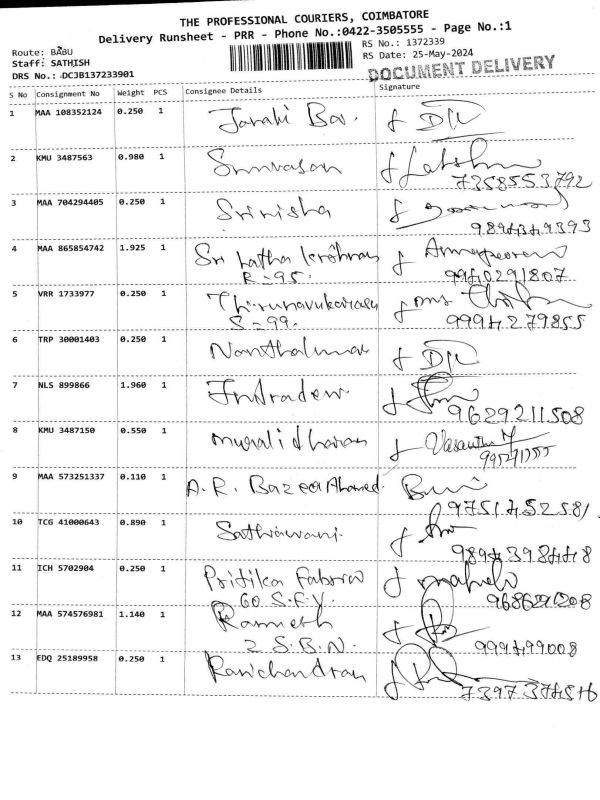 THE PROFESSIONAL COURIERS, COIMBATORE
Delivery Runsheet - PRR - Phone No.:0422-3505555 - Page No.:1
Route: BABU
RS No.: 1372339
Staff: SATHISH
RS Date: 25-May-2024
DRS No.: DC3B137233901
DOCUMENT DELIVERY
S No Consignment No Weight PCS Consignee Details Signature
1 MAA 108352124 0.250 1
2 KMU 3487563 0.980 1 Srinivasan
7358553792
3 MAA 704294405 0.250 1 Srinisha
4 MAA 865854742 1.925 1 Sri
R-95.
9940291807
5 VRR 1733977 0.250 1 Thirunavukarasu
S-99.
9994279855
6 TRP 30001403 0.250 1
7 NLS 899866 1.960 1
9629211508
8 KMU 3487150 0.550 1 muralidharan Vasantha
9 MAA 573251337 0.110 1 A.R. Bazeer Ahamed
9751452581
10 TCG 41000643 0.890 1
9894398448
11 ICH 5702904 0.250 1
60 S.F.Y.
12 MAA 574576981 1.140 1 Ramesh
2 S.B.N.
9994499008
13 EDQ 25189958 0.250 1 Ravichandran
7397374516